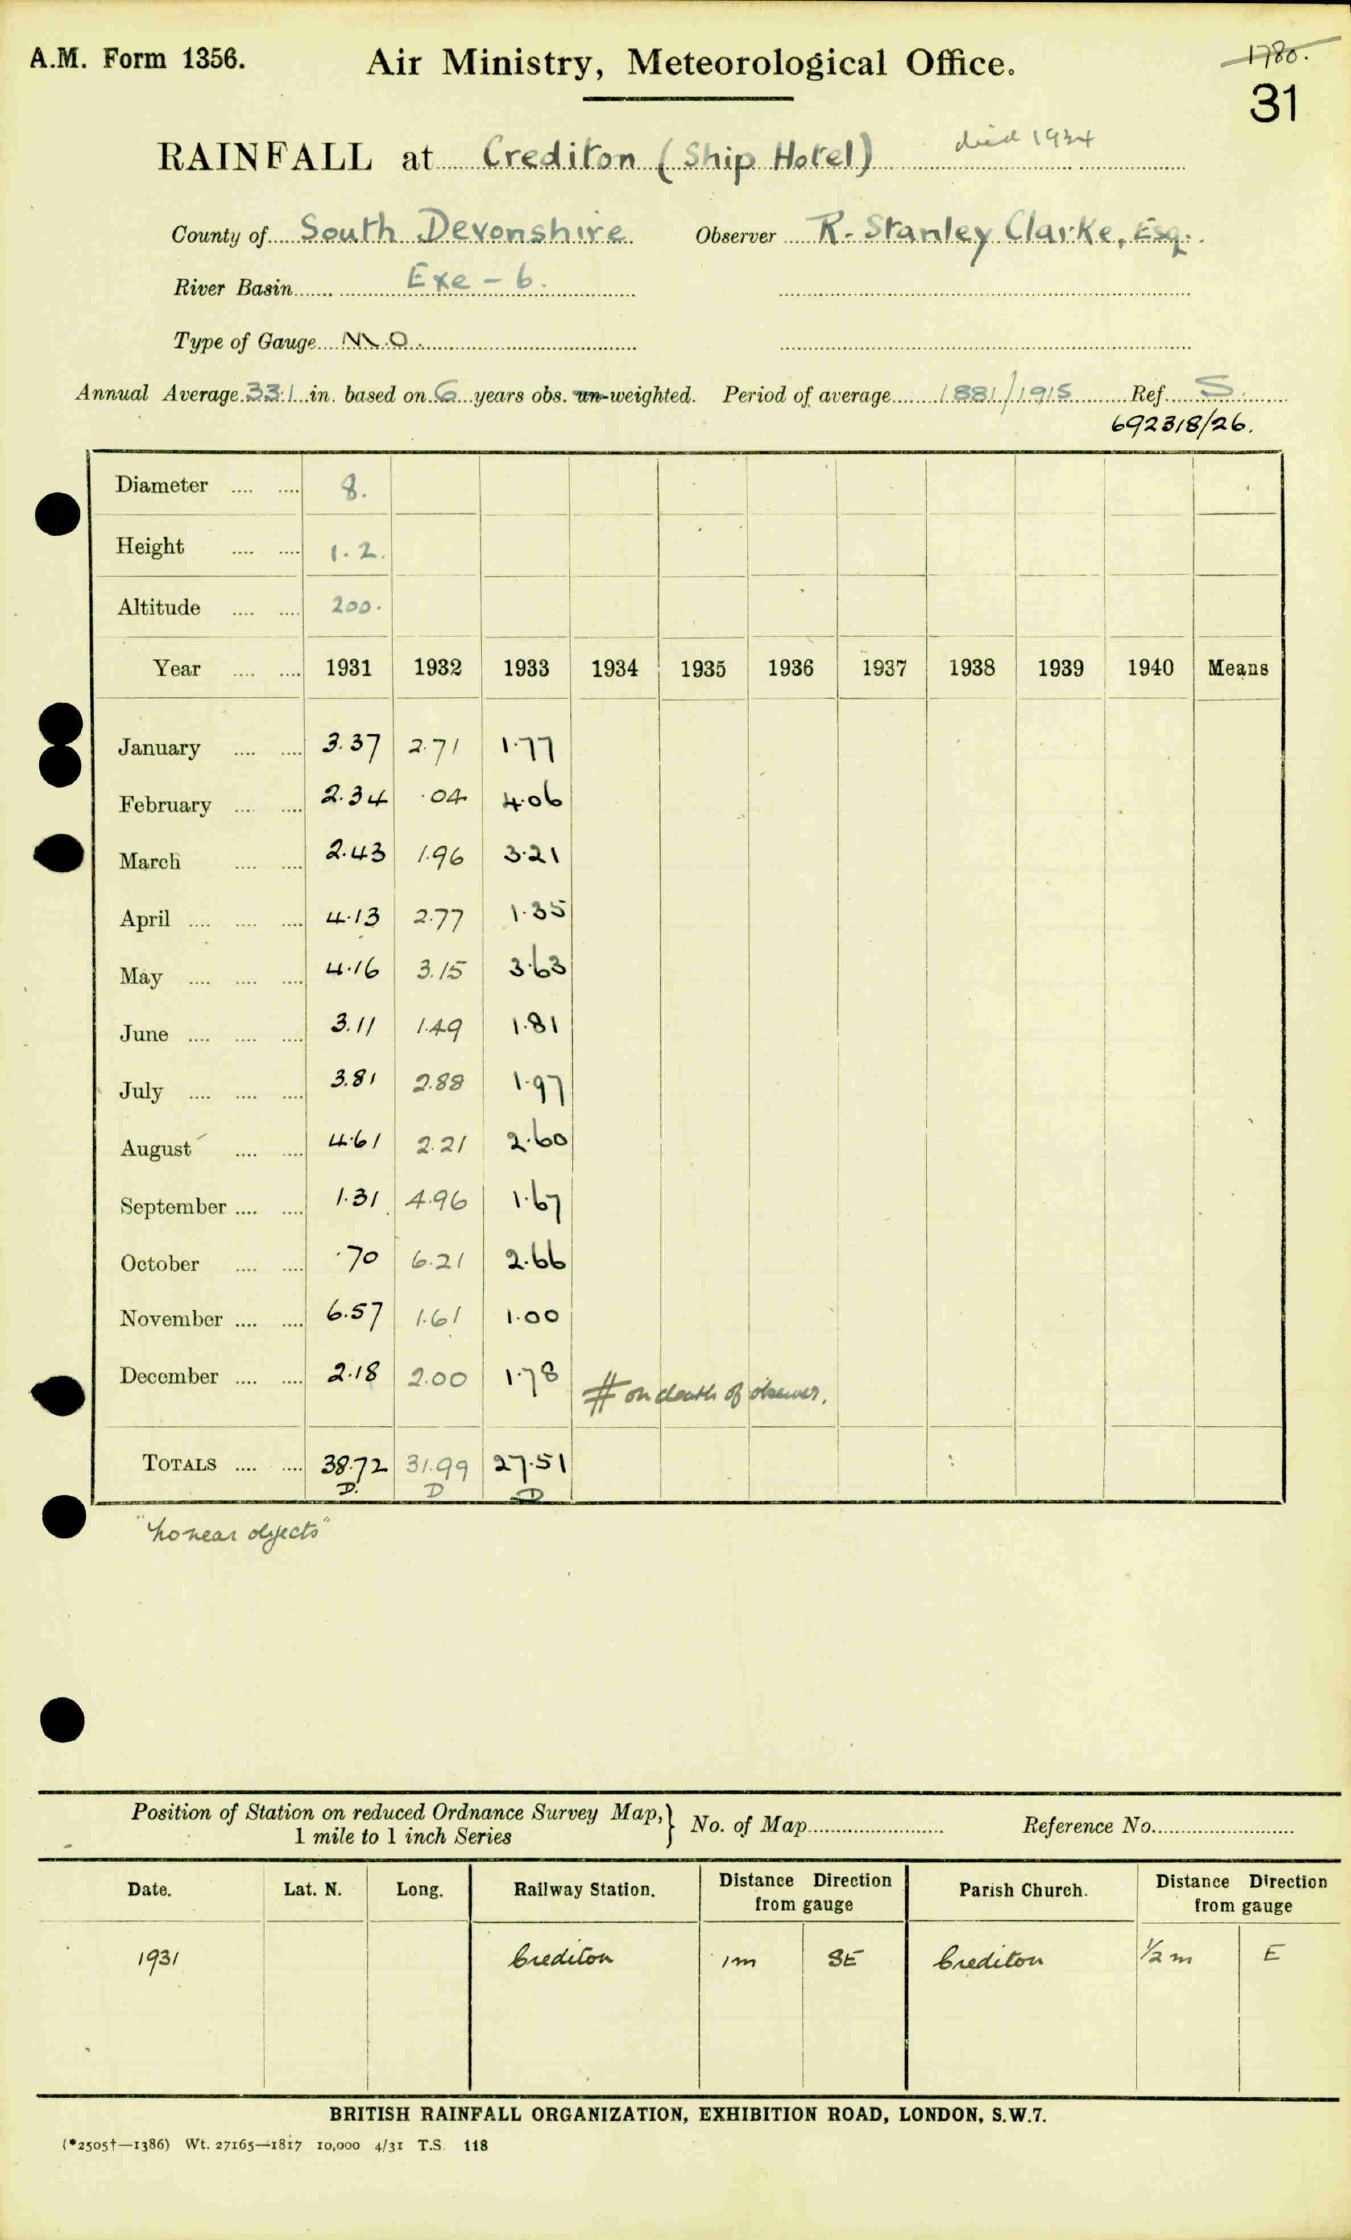 A.M. Form 1356.
Air Ministry, Meteorological Office.
1780.
31
RAINFALL at Crediton (Ship Hotel) died 1934
County of South Devonshire Observer R. Stanley Clarke, Esq.
River Basin Exe - 6.
Type of Gauge M.O.
Annual Average 33.1 in. based on 6 years obs. un-weighted. Period of average 1881/1915 Ref. S.
692318/26.
Diameter .... .... 8.
Height .... .... 1.2.
Altitude .... .... 200.
Year .... .... 1931 1932 1933 1934 1935 1936 1937 1938 1939 1940 Means
January .... .... 3.37 2.71 1.77
February .... .... 2.34 .04 4.06
March .... .... 2.43 1.96 3.21
April .... .... .... 4.13 2.77 1.35
May .... .... .... 4.16 3.15 3.63
June .... .... .... 3.11 1.49 1.81
July .... .... .... 3.81 2.88 1.97
August .... .... 4.61 2.21 2.60
September .... .... 1.31 4.96 1.67
October .... .... .70 6.21 2.66
November .... .... 6.57 1.61 1.00
December .... .... 2.18 2.00 1.78 # on death of observer.
TOTALS .... .... 38.72 31.99 27.51
D. D D
"no near objects"
Position of Station on reduced Ordnance Survey Map, } No. of Map Reference No.
1 mile to 1 inch Series
Date. Lat. N. Long. Railway Station. Distance Direction from gauge Parish Church. Distance Direction from gauge
1931 Crediton 1m SE Crediton 1/2 m E
BRITISH RAINFALL ORGANIZATION, EXHIBITION ROAD, LONDON, S.W.7.
(*2505†—1386) Wt. 27165—1817 10,000 4/31 T.S. 118